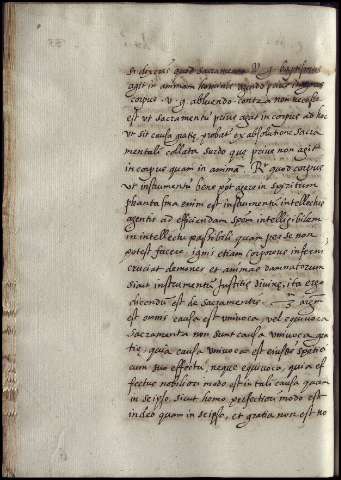 si dixeris quod sacramentū v. g. baptismus
agit in animam hominis agendo prius in
corpus . v. g. abluendo . contra non necesse
est vt sacramentū prius agat in corpus ad hoc
vt sit causa gratię, probat ex absolutione sacra
mentali collata surdo quę prius non agit
in corpus quam in animā . Rr quod corpus
vt instrumentū bene pōt agere in spiritum
phantasma enim est instrumentū intellectus
agentis ad efficiendam spēm intelligibilem
in intellectu possibili quam per se non
potest facere, ignis etiam corporeus inferni
cruciat demones et animas damnatorum
sicut instrumentū Iustitię diuinę, ita ergo
dicendū est de sacramentis .
est omnis causa est vniuoca, vel equiuoca
sacramenta non sunt causa vniuoca gra
tię, quia causa vniuoca est eiusdē speciei
cum suo effectu, neque equiuoca, quia ef
fectus nobiliori modo est in tali causa quam
in seipso, sicut homo perfectiori modo est
in deo quam in seipso, et gratia non est no